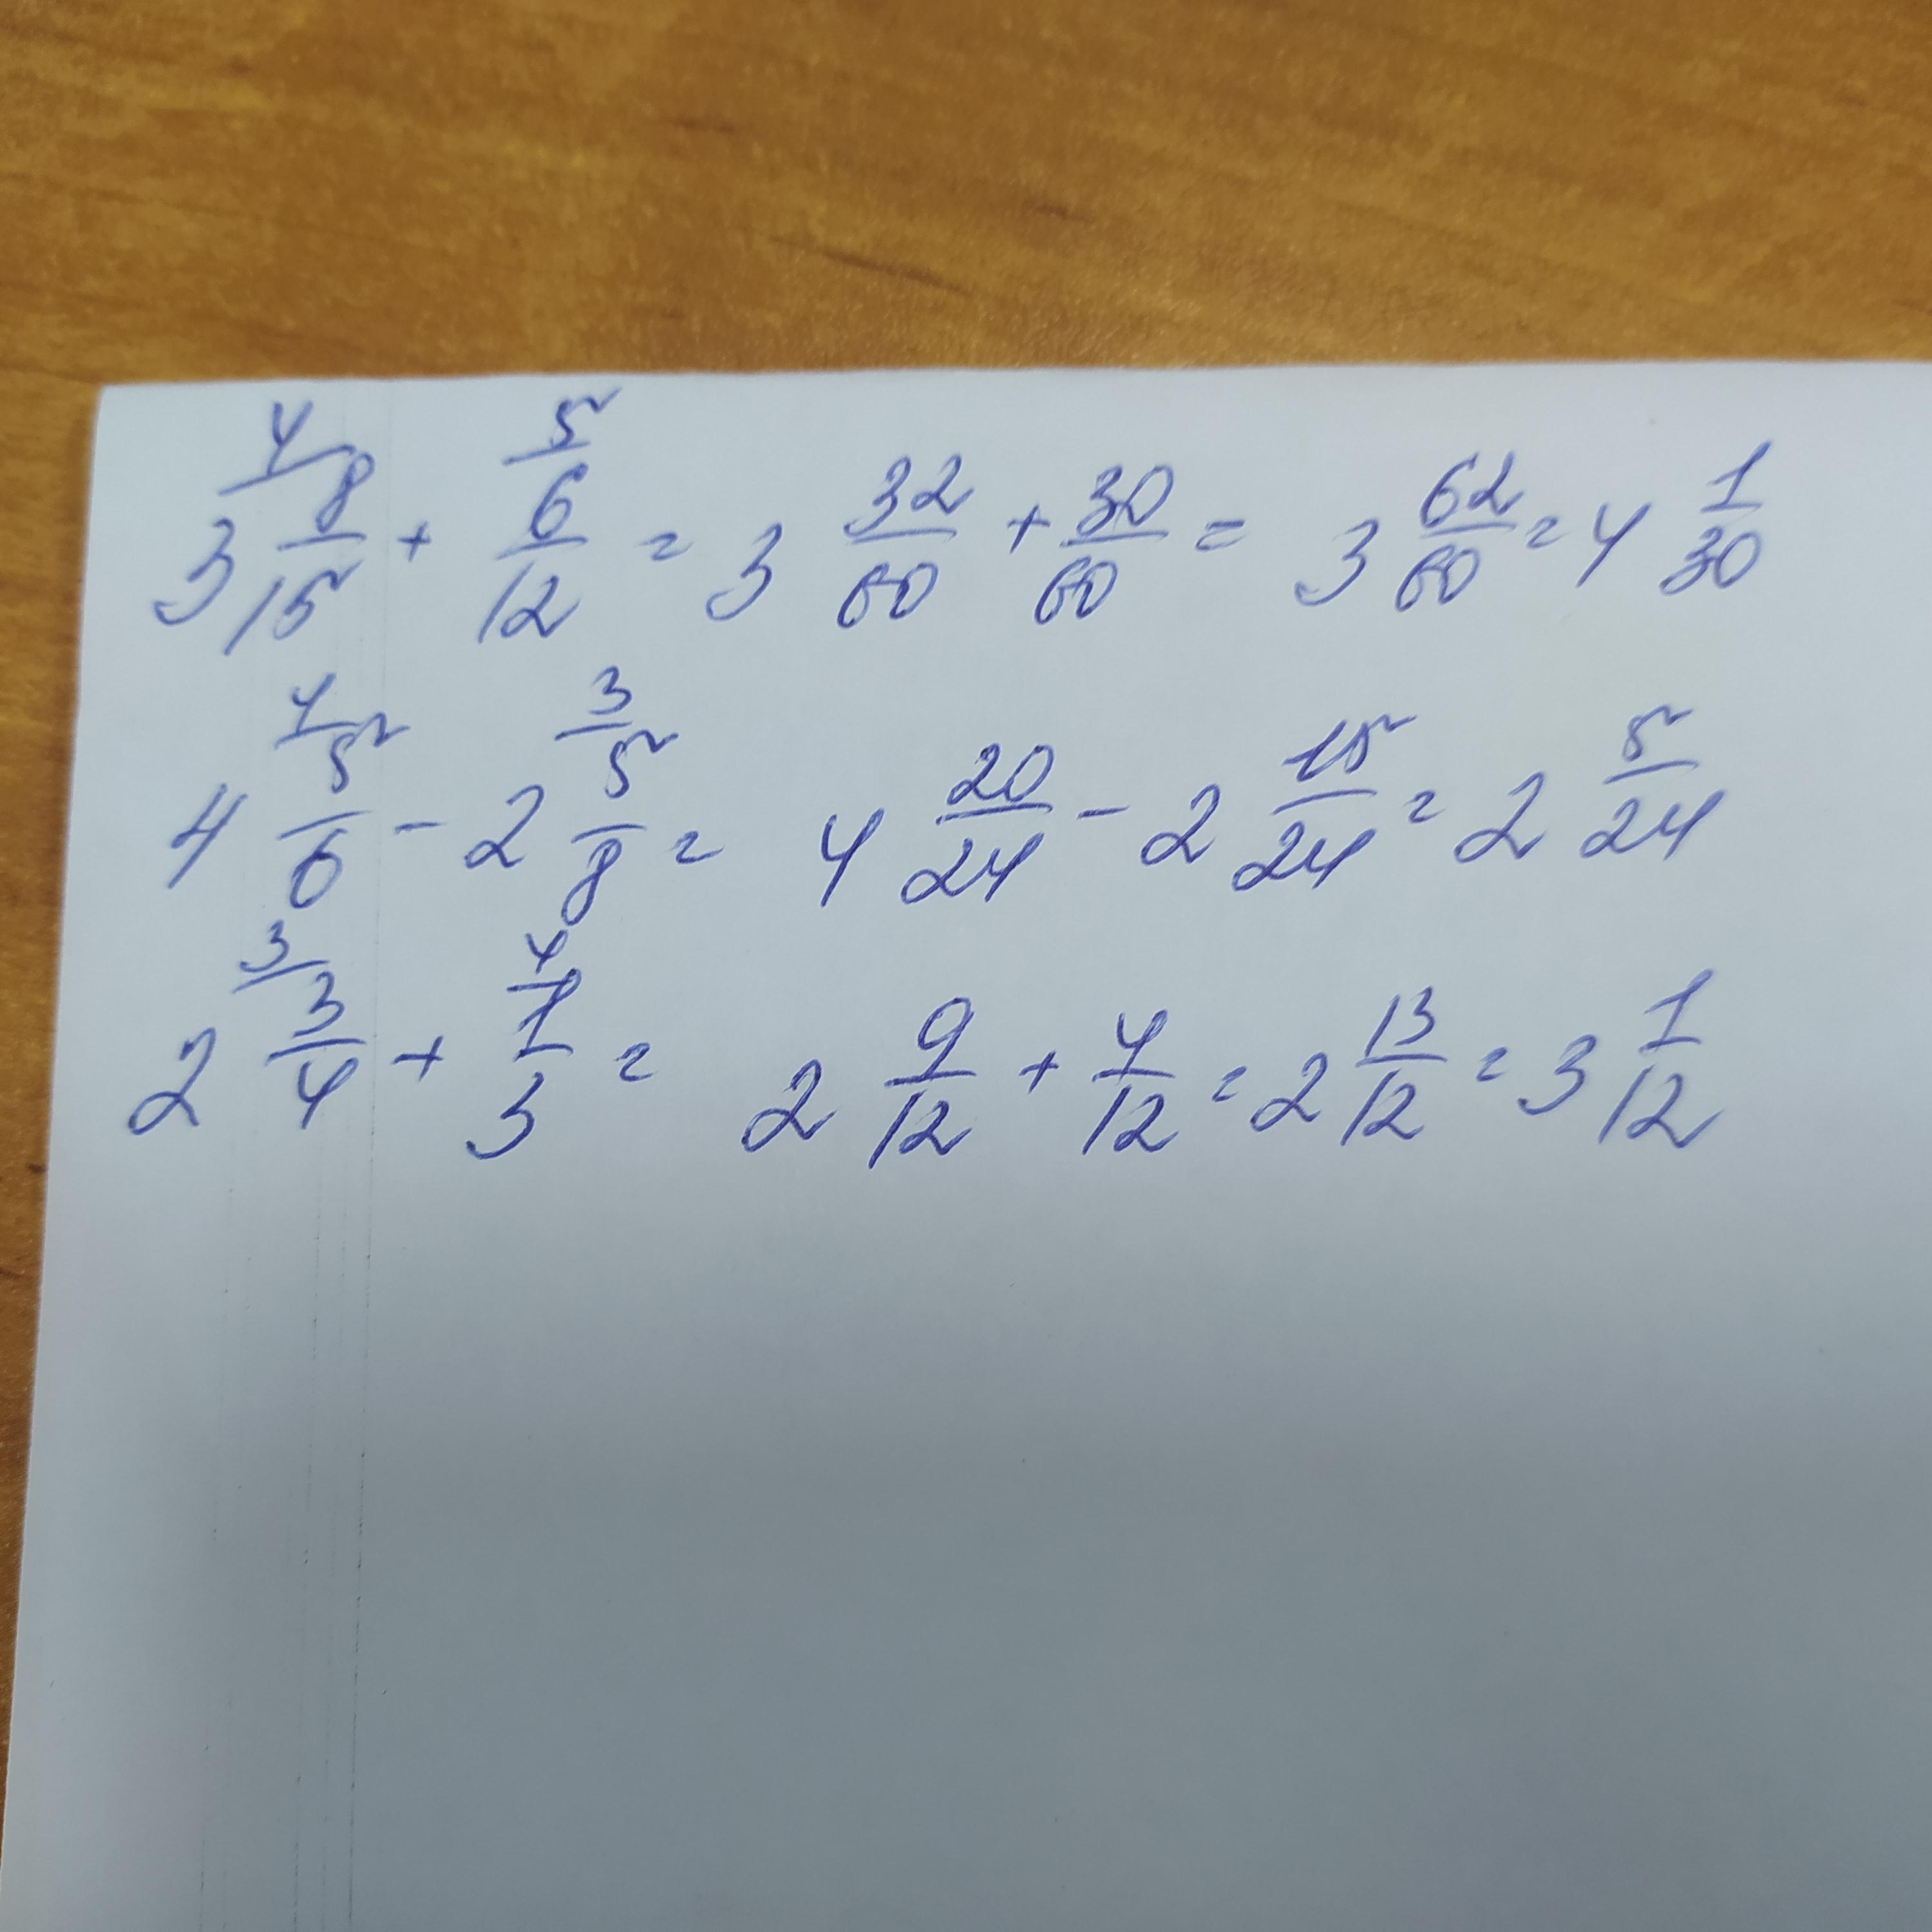 3 4/ 8/15 + 5/ 6/12 = 3 32/60 + 30/60 = 3 62/60 = 4 1/30
4 4/ 5/6 - 2 3/ 5/8 = 4 20/24 - 2 15/24 = 2 5/24
2 3/ 3/4 + 4/ 1/3 = 2 9/12 + 4/12 = 2 13/12 = 3 1/12